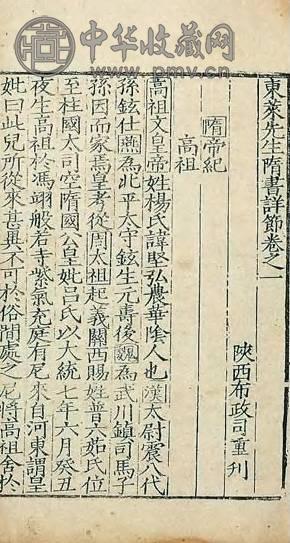 中华收藏网
www.pmv.cn
東萊先生隋書詳節卷之一
陝西布政司重刊
隋帝紀
高祖
高祖文皇帝姓楊氏諱堅弘農華陰人也漢太尉震八代
孫鉉仕燕為北平太守鉉生元壽後魏為武川鎮司馬子
孫因而家焉皇考從周太祖起義關西賜姓普六茹氏位
至柱國太司空隋國公皇妣呂氏以大統七年六月癸丑
夜生高祖於馮翊般若寺紫氣充庭有尼來自河東謂皇
妣曰此兒所從來甚異不可於俗間處之尼將高祖舍於